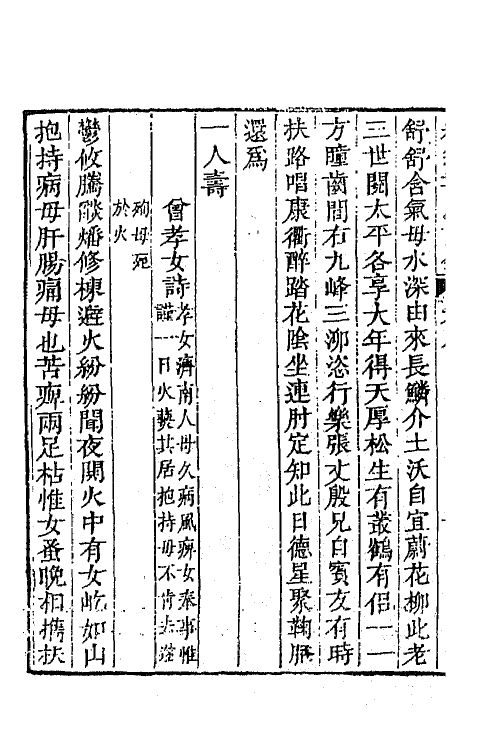 舒舒含氣母水深由來長鱗介土沃自宜蔚花柳此老
三世關太平各享大年得天厚松生有叢鶴有侶一一
方瞳齒間右九峰三泖恣行樂張丈殷兄自賓友有時
扶路唱康衢醉踏花陰坐連肘定知此日德星聚鞠脹
還爲
一人壽
曾孝女詩孝女濟南人母久病風痹女奉事惟
謹一日火藝其居抱持母不肯去遂
殉母死
於火
鬱攸騰燄燔修棟避火紛紛閙夜閧火中有女屹如山
抱持病母肝腸痛母也苦痹兩足枯惟女蚤晚相攜扶